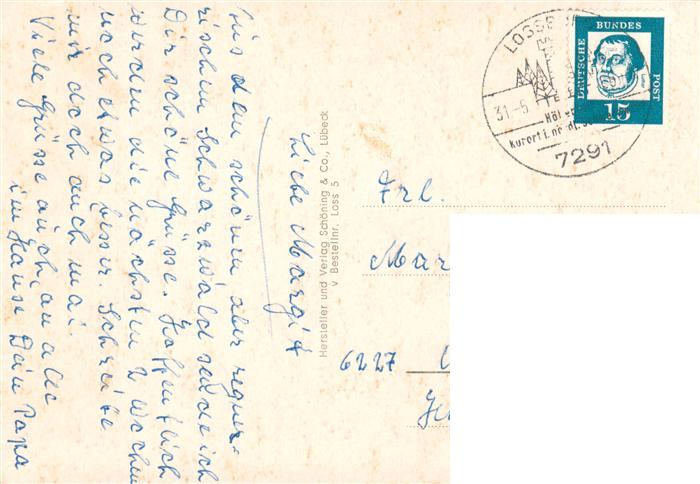 Liebe Margit
Aus dem schönen aber regner-
rischen Schwarzwald sende ich
Dir schöne Grüsse. Hoffentlich
werden die nächsten 2 Wochen
noch etwas besser. Schreibe
mir doch auch mal.
Viele Grüsse auch an alle
im Hause Dein Papa
Hersteller und Verlag Schöning & Co., Lübeck
v Bestellnr. Loss 5
LOSSB
31.-5
Kurort i. nördl.
7291
DEUTSCHE BUNDES POST
15
Frl.
Mar
6227